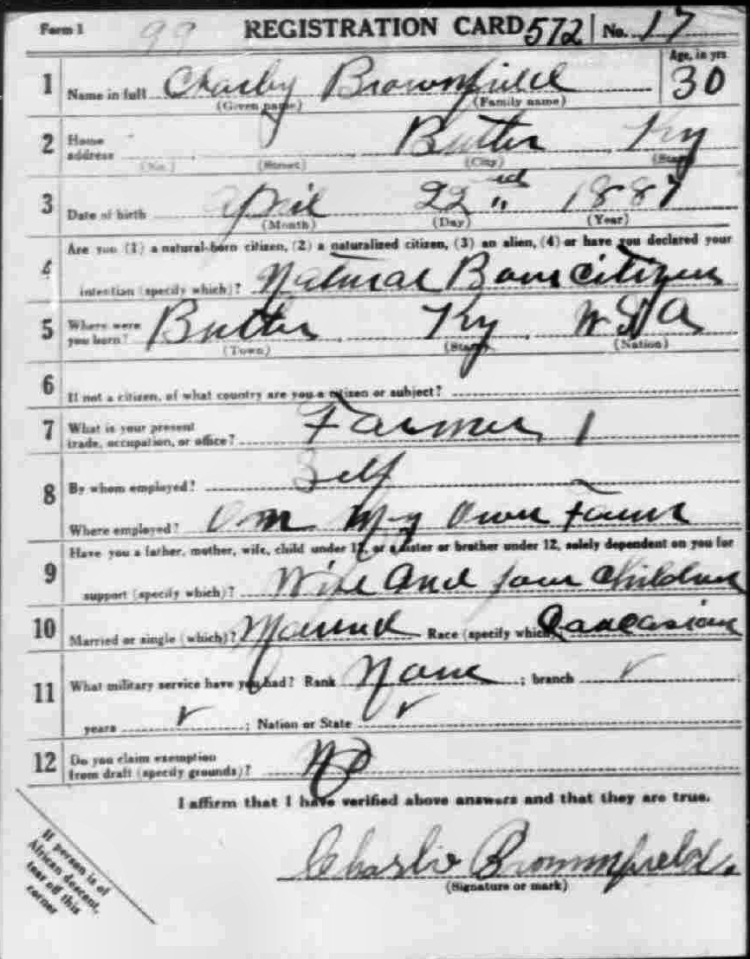 Form 1 99 REGISTRATION CARD 572 No. 17
1 Name in full Charley Brownfield Age, in yrs 30
(Given name) (Family name)
2 Home address Butler Ky
(No.) (Street) (City) (State)
3 Date of birth April 22 1887
(Month) (Day) (Year)
Are you (1) a natural-born citizen, (2) a naturalized citizen, (3) an alien, (4) or have you declared your
4 intention (specify which)? Natural Born citizen
5 Where were you born? Butler Ky
(Town) (State) (Nation)
6 If not a citizen, of what country are you a citizen or subject?
7 What is your present trade, occupation, or office? Farmer 1
8 By whom employed? Self
Where employed? On My Own Farm
Have you a father, mother, wife, child under 12, or a sister or brother under 12, solely dependent on you for
9 support (specify which)? Wife and four children
10 Married or single (which)? Married Race (specify which)? Caucasian
11 What military service have you had? Rank None ; branch ✓
years ✓ ; Nation or State ✓
12 Do you claim exemption from draft (specify grounds)? No
I affirm that I have verified above answers and that they are true.
Charlie Brownfield.
(Signature or mark)
If person is of
African descent,
tear off this
corner